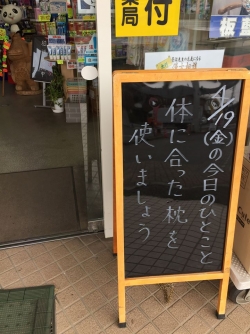 薬局
付
板
4/19(金)の今日のひとこと
体に合った枕を
使いましょう